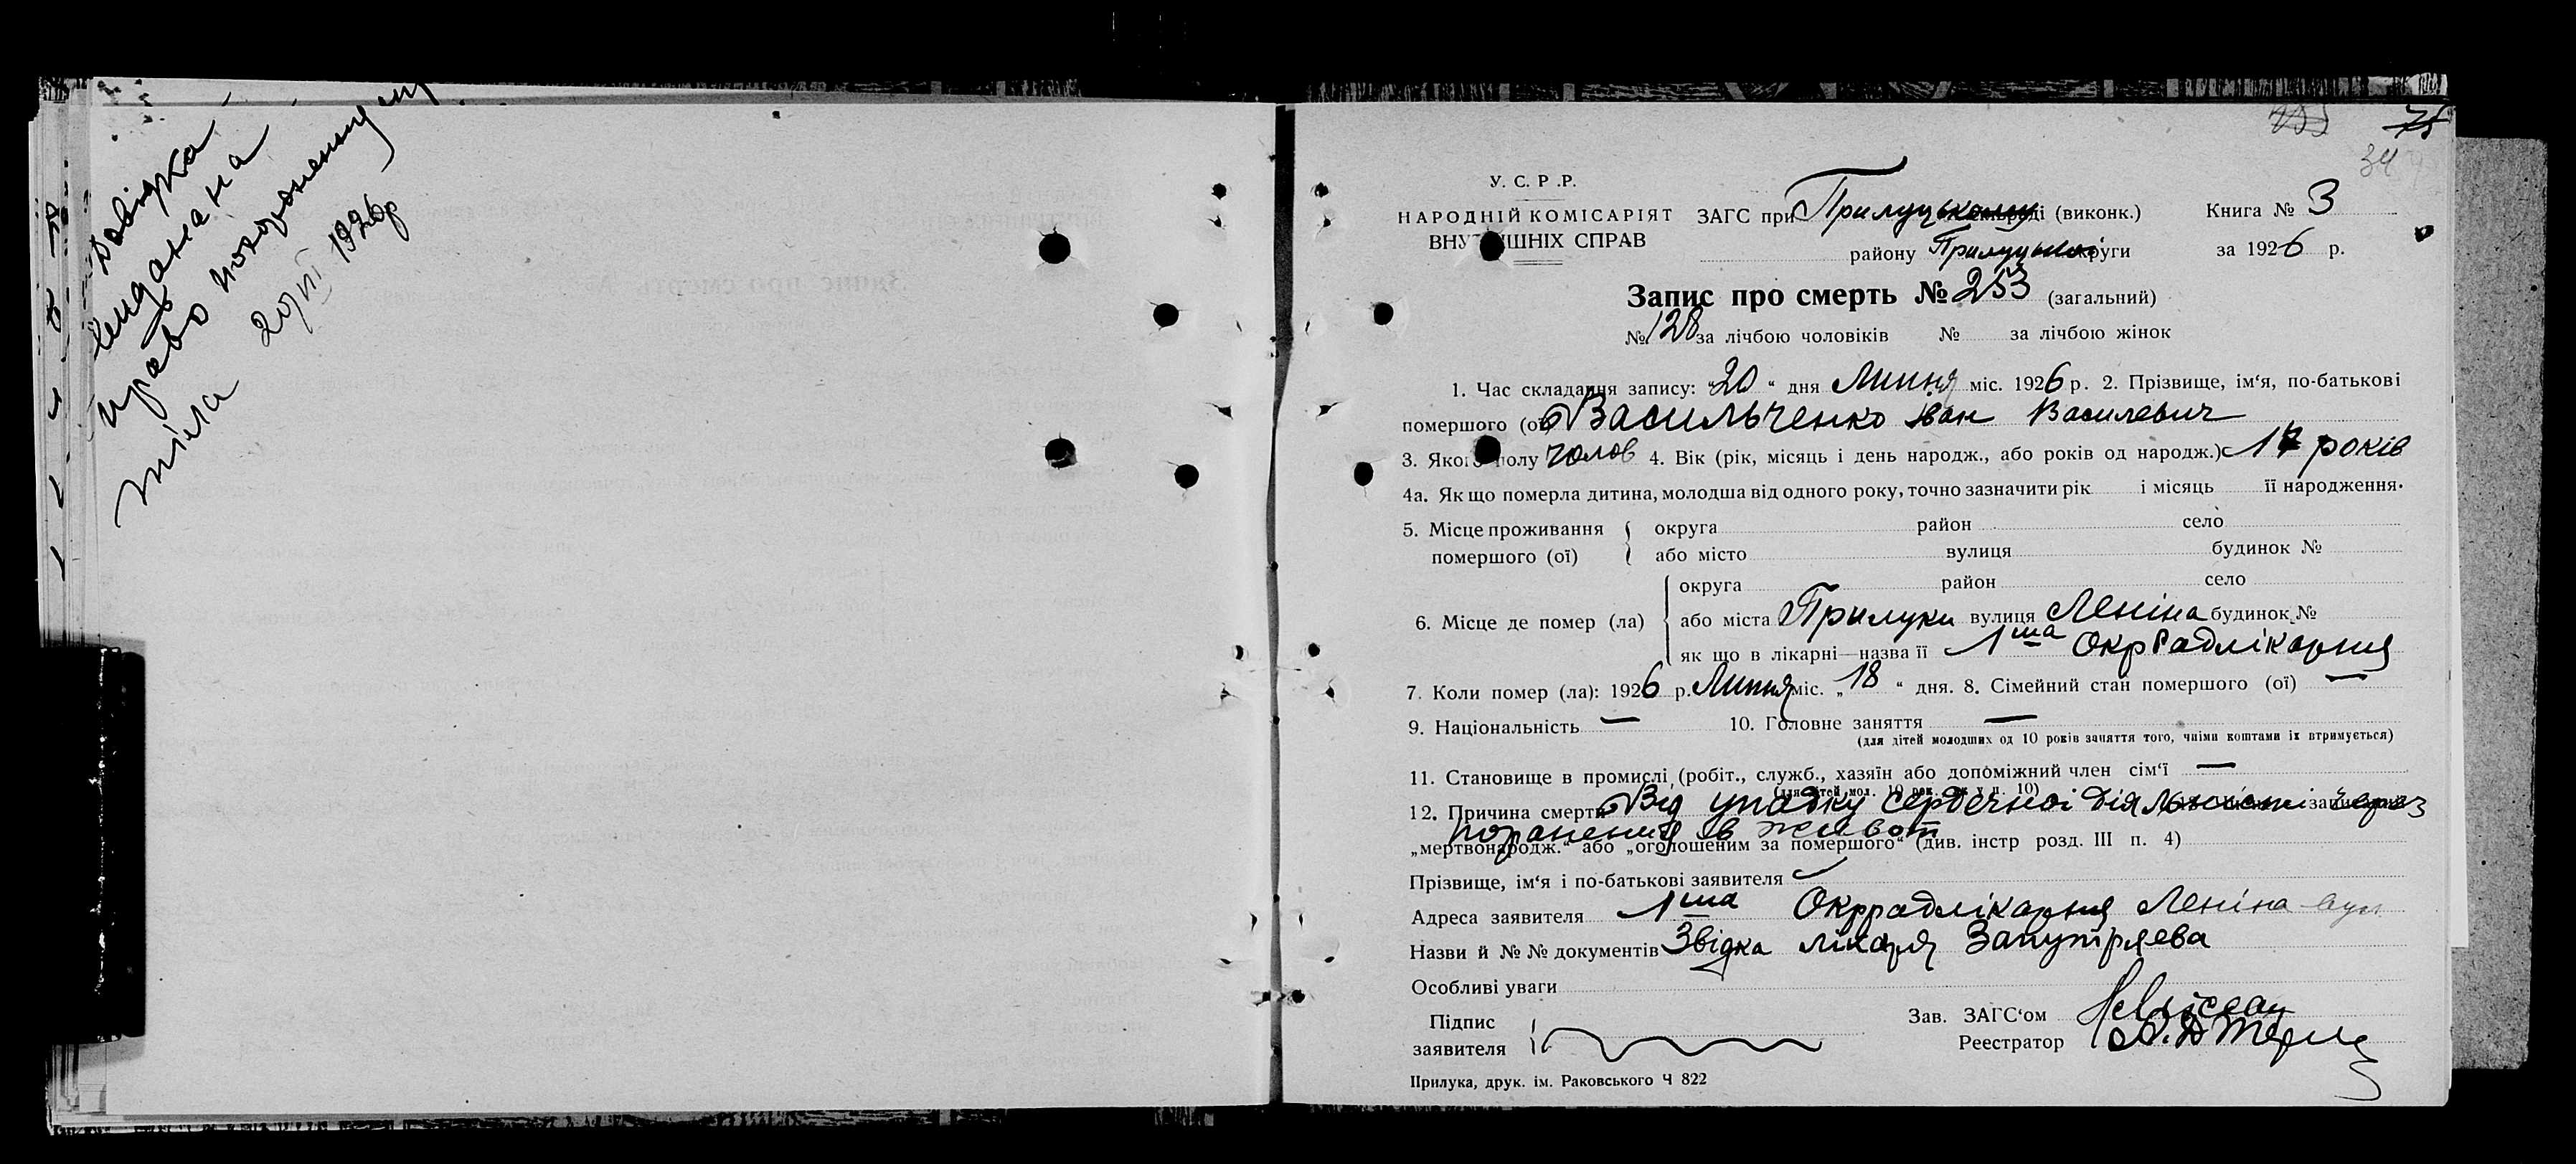 Довідка
видана на
право похоронення
тіла 20/VII 1926р
34
У. С. Р. Р.
НАРОДНІЙ КОМІСАРІЯТ
ВНУТРІШНІХ СПРАВ
ЗАГС при Прилуцькому (виконк.)
району Прилуцької округи
Книга № 3
за 1926 р.
Запис про смерть № 253 (загальний)
№ 128 за лічбою чоловіків № за лічбою жінок
1. Час складання запису: „20“ дня Липня міс. 1926 р. 2. Прізвище, ім‘я, по-батькові
помершого (ої) Васильченко Іван Василевич
3. Якого полу чолов 4. Вік (рік, місяць і день народж., або років од народж.) 17 років
4а. Як що померла дитина, молодша від одного року, точно зазначити рік і місяць її народження.
5. Місце проживання помершого (ої) { округа район село
або місто вулиця будинок №
6. Місце де помер (ла) { округа район село
або міста Прилуки вулиця Леніна будинок №
як що в лікарні—назва її 1ша Окррадлікарня
7. Коли помер (ла): 1926 р. Липня міс. „18“ дня. 8. Сімейний стан помершого (ої) —
9. Національність — 10. Головне заняття —
(для дітей молодших од 10 років заняття того, чиїми коштами їх втримується)
11. Становище в промислі (робіт., служб., хазяїн або допоміжний член сім‘ї —
(для дітей мол. 10 рок. як у п. 10)
12. Причина смерти Від упадку сердечної діяльности через
поранения в живот
„мертвонародж.“ або „оголошеним за помершого“ (див. інстр розд. III п. 4)
Прізвище, ім‘я і по-батькові заявителя
Адреса заявителя 1ша Окррадлікарня Леніна вул
Назви й № № документів Звідка лікаря Запутряева
Особливі уваги
Підпис
заявителя
Зав. ЗАГС‘ом
Реестратор
Прилука, друк. ім. Раковського Ч 822